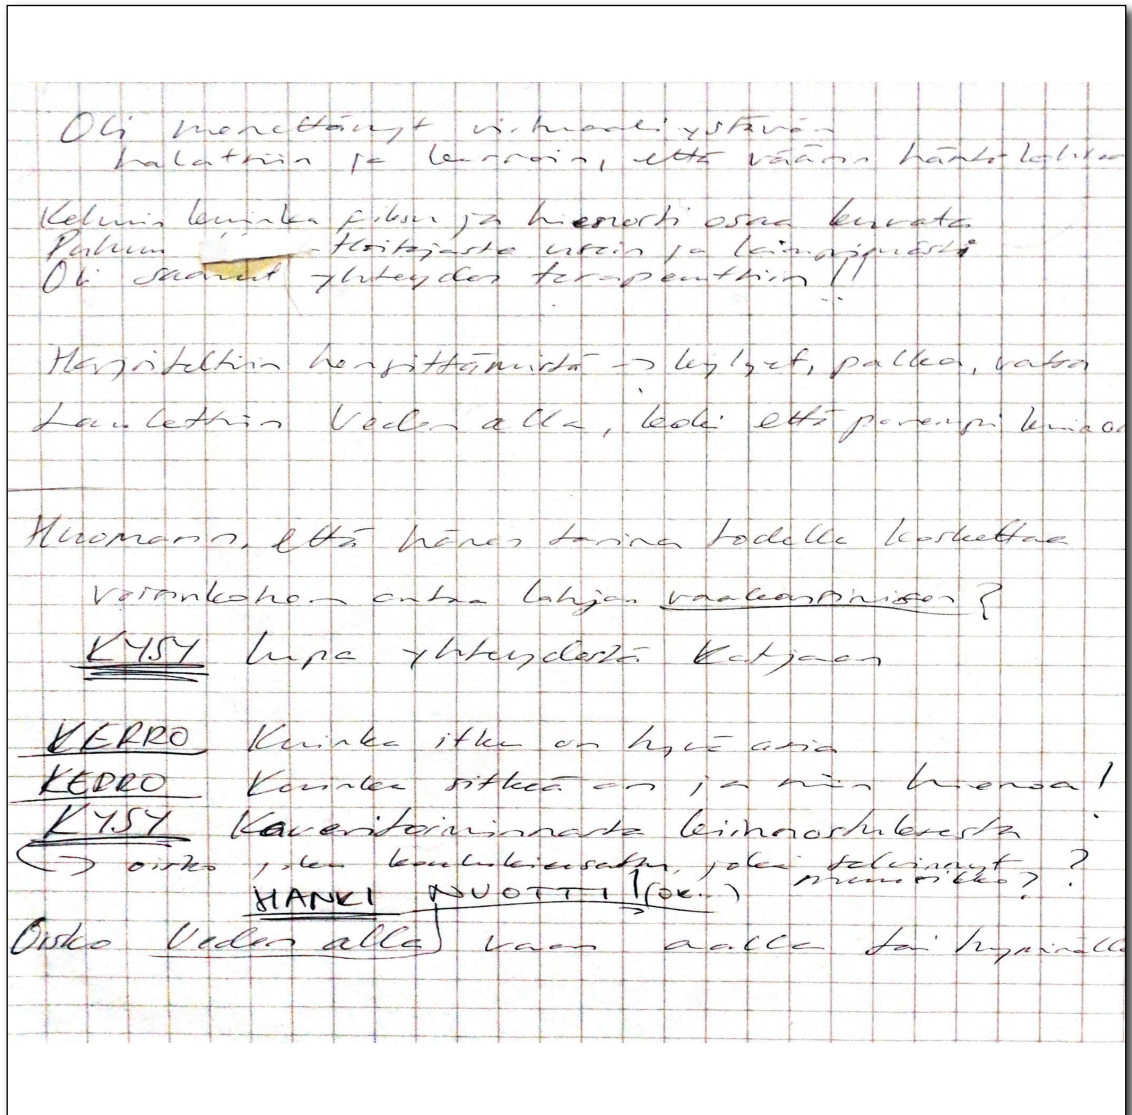 Oli menettänyt virtuaaliystävän
halattiin ja kerroin, että väärin häntä
Kehuin kuinka fiksu ja hienosti osaa kuvata
Puhuu -hoitajasta usein ja lämpimästi
Oli saanut yhteyden terapeuttiin!!
Harjoiteltiin hengittämistä → kyljet, pallea, vatsa
Laulettiin Veden alla, koki että parempi
Huomaan, että hänen tarina todella koskettaa
voisinkohan antaa lahjan ?
KYSY lupa yhteydestä Katjaan
KERRO Kuinka itku on hyvä asia
KERRO Kuinka sitkeä on ja niin hienoa!
KYSY Kaveritoiminnasta kiinnostuksesta
→ oisko joku koulukiusattu, joka selvinnyt ?
muusikko?
HANKI NUOTTI! (ok...)
Oisko Veden alla vaan aalla tai hyminällä